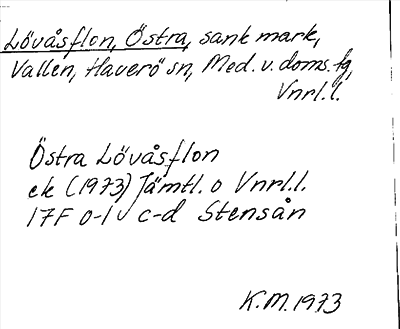 Lövåsflon, Östra, sank mark,
Vallen, Haverö sn, Med. v. doms. tg,
Vnrl. l.
Östra Lövåsflon
ek (1973) Jämtl. o Vnrl. l.
17F 0-1 c-d Stensån
K.M. 1973